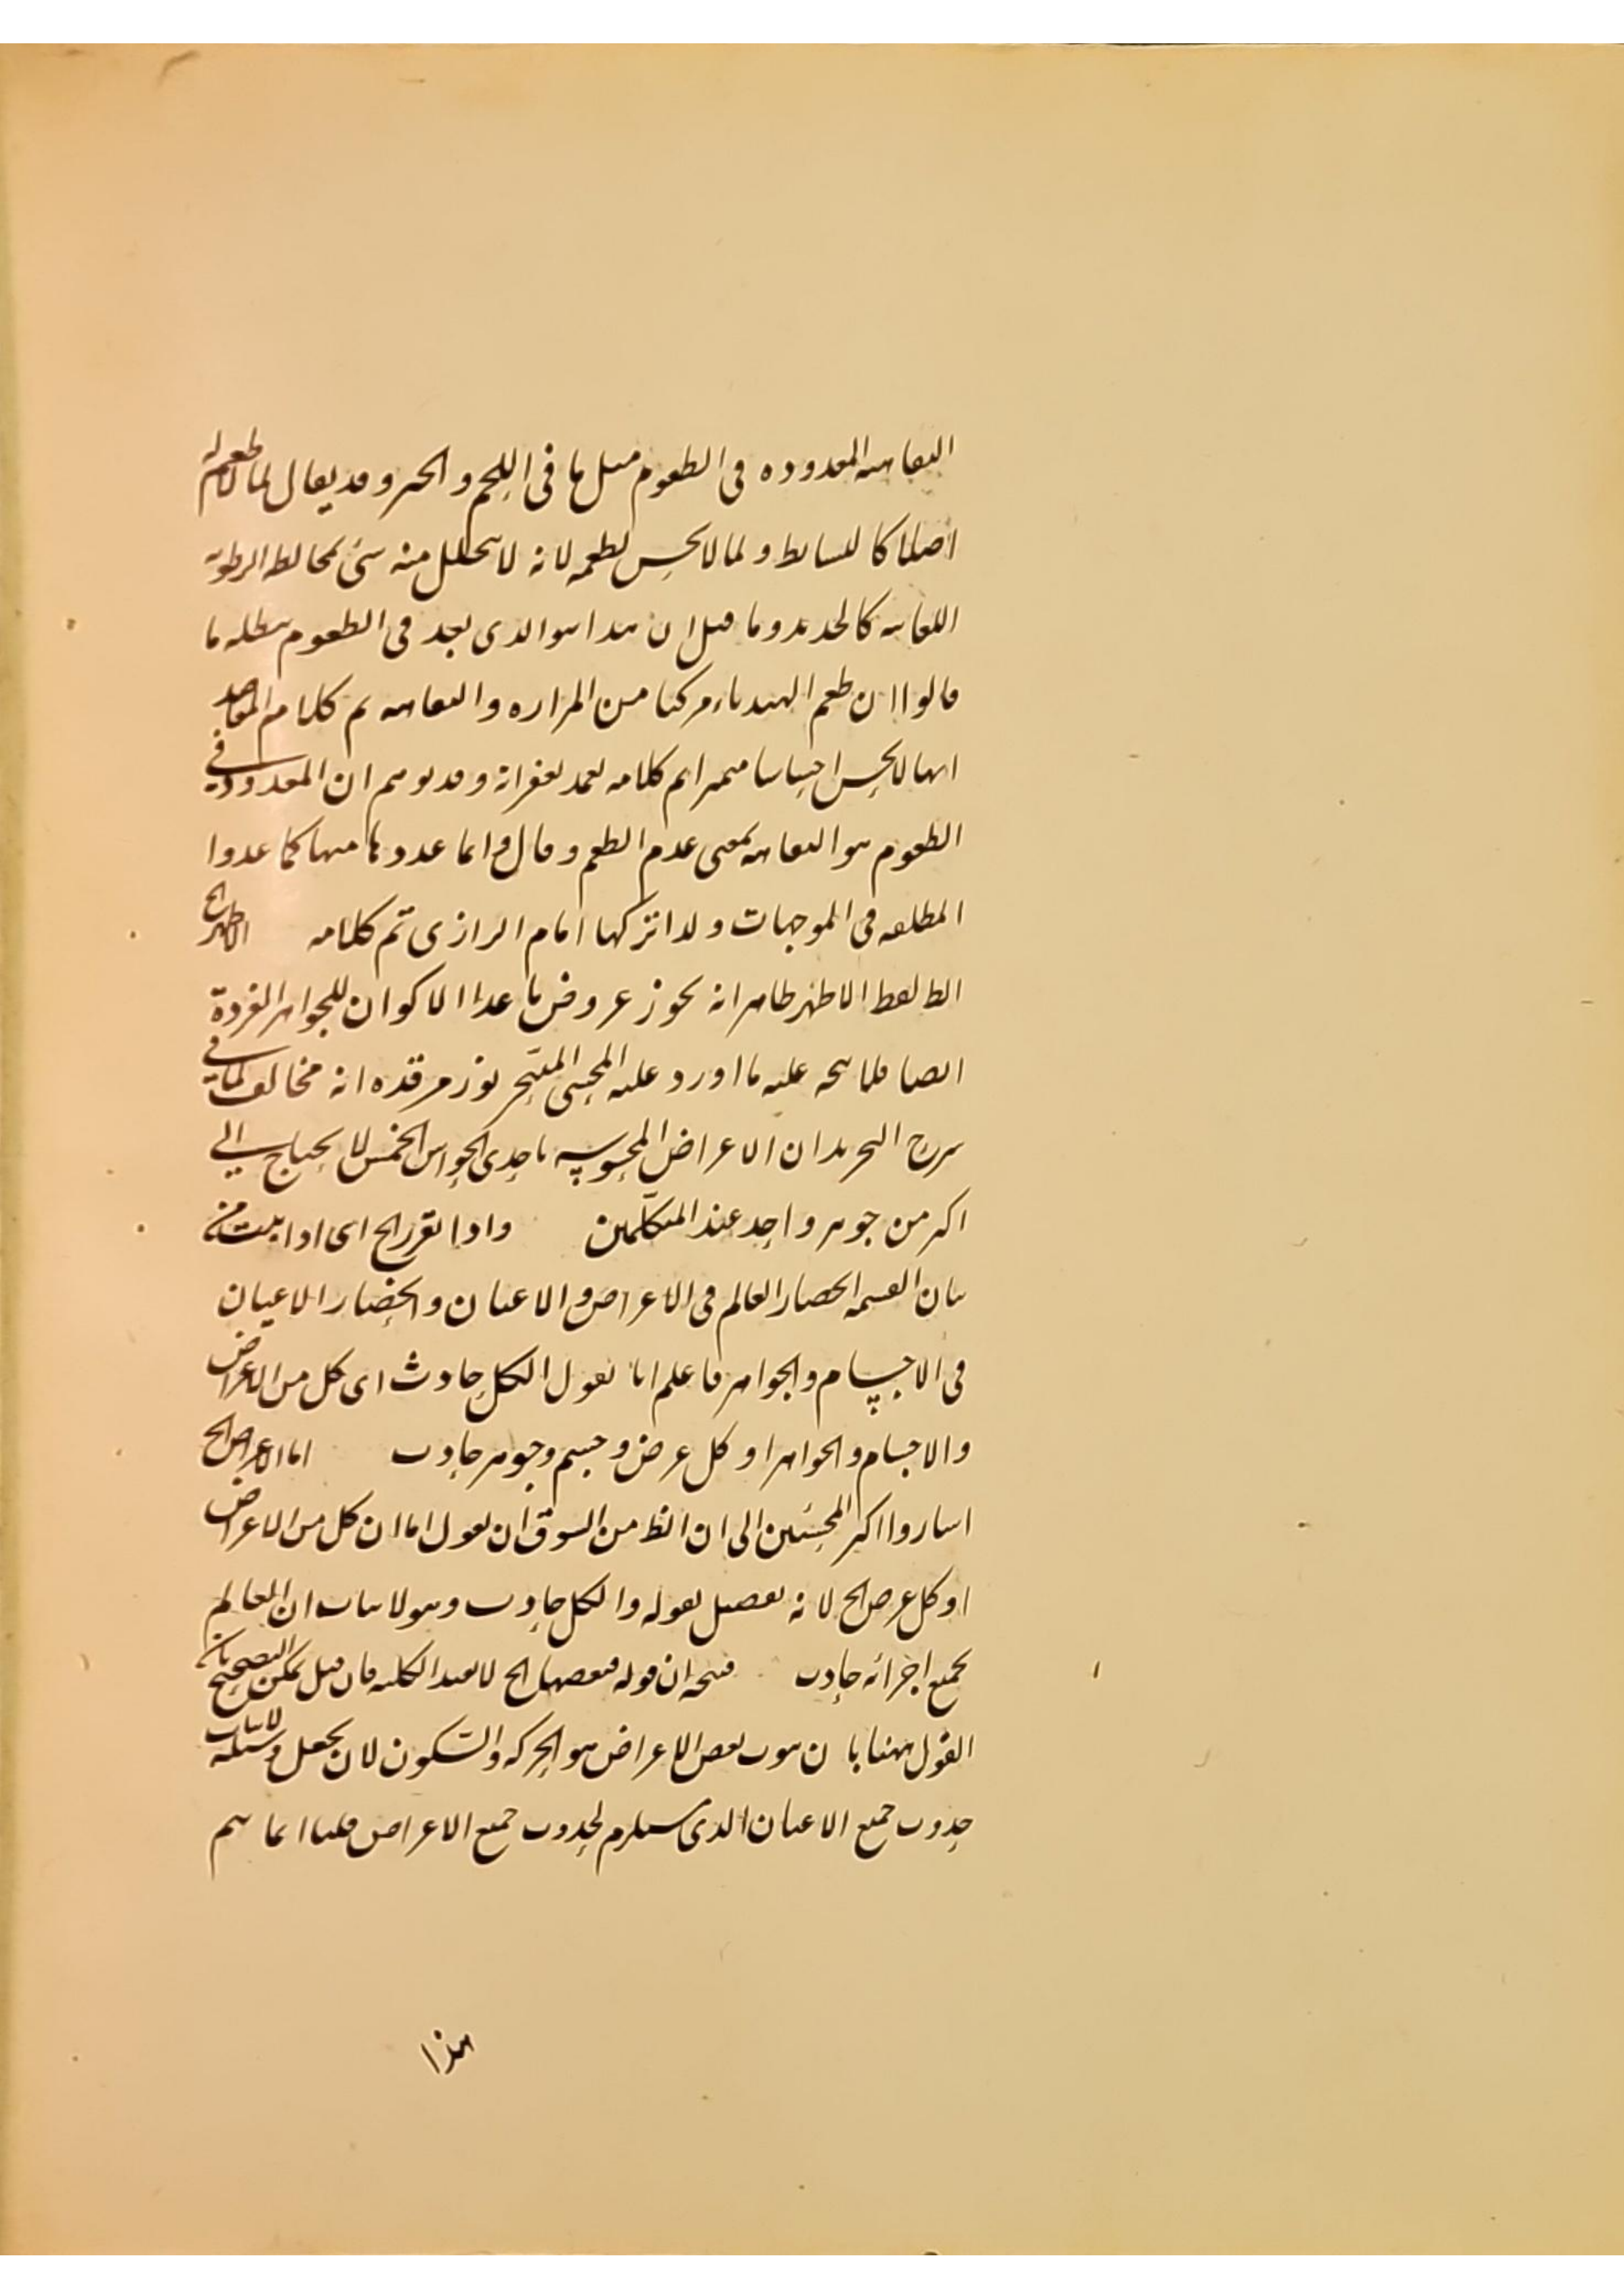 التفاهه المعدوده فى الطعوم مثل ما فى اللحم والخبز وقد يقال لما لا طعم له
اصلا كالبسايط ولما لا يحس بطعمه لانه لا يتحلل منه شئ يخالط الرطوبة
اللعابيه كالحديد وما قيل ان هذا هو الذى يعد فى الطعوم يبطله ما
قالوا ان طعم الهندباء مركبا من المراره والتفاهه تم كلام المقاصد
انها لا يحس احساسا متميزا تم كلامه تغمد بغفرانه وقد يوهم ان المعدود فى
الطعوم هو التفاهه بمعنى عدم الطعم وقال وانما عدوها منها كما عدوا
المطلقه فى الموجهات ولذا تركها امام الرازى تم كلامه الاظهر الخ
الظ لفظ الاظهر ظاهر انه يجوز عروض ما عدا الاكوان للجواهر الفردة
ايضا فلا يتجه عليه ما اورد عليه المحشى المتبحر نور مرقده انه مخالف لما فى
شرح التجريد ان الاعراض المحسوسه باحدى الحواس الخمس لا يحتاج الى
اكثر من جوهر واحد عند المتكلمين واذا تقرر الخ اى اذا ثبت من
بيان القسمه انحصار العالم فى الاعراض والاعيان وانحصار الاعيان
فى الاجسام والجواهر فاعلم انا نقول الكل حادث اى كل من الاعراض
والاجسام والجواهر او كل عرض وجسم وجوهر حادث اما الاعراض الخ
اشاروا اكثر المحشين الى ان الظ من السوق ان يقول اما ان كل من الاعراض
او كل عرض الخ لانه تفصيل لقوله والكل حادث وهو لاثبات ان العالم
بجميع اجزائه حادث فيتجه ان قوله فبعضها الخ لا يفيد الكليه فان قيل يمكن التصحيح بان
القول ههنا بان ثبوت بعض الاعراض هو الحركه والسكون لان يجعل وسيلة لاثبات
حدوث جميع الاعيان الذى يستلزم لحدوث جميع الاعراض قلنا انما يتم
هذا